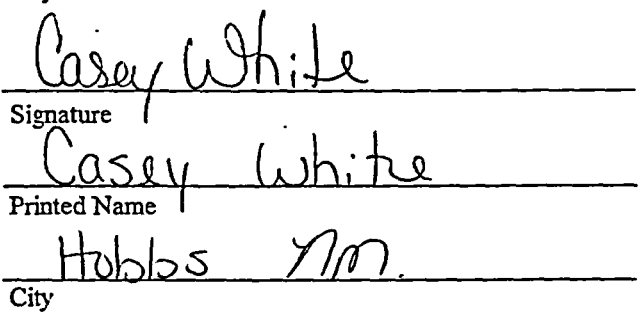 Casey White
Signature
Casey White
Printed Name
Hobbs NM.
City